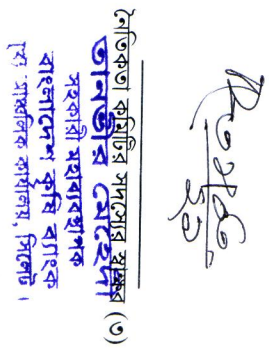 নৈতিকতা কমিটির সদস্যের স্বাক্ষর (৩)
তানভীর মেহেদী
সহকারী মহাব্যবস্থাপক
বাংলাদেশ কৃষি ব্যাংক
মুখ্য আঞ্চলিক কার্যালয়, সিলেট ।